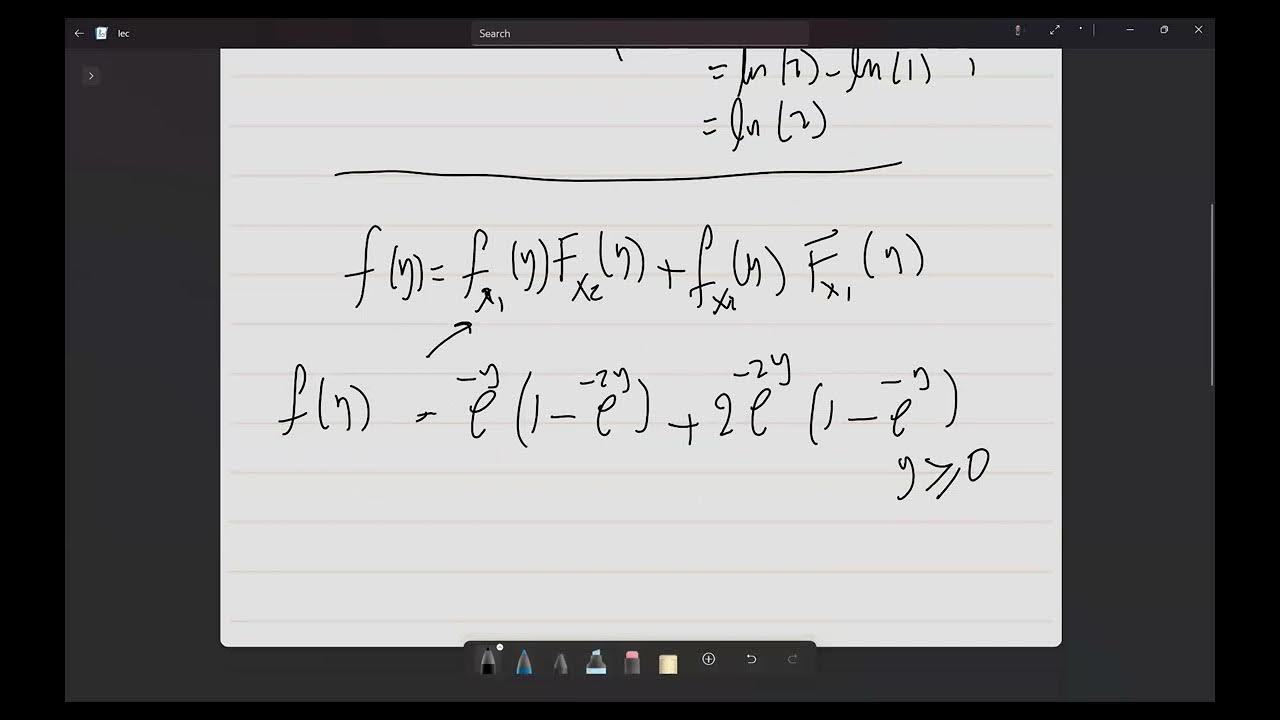 lec
Search
= ln(2) - ln(1)
= ln(2)
f(y) = f_{X_1}(y) F_{X_2}(y) + f_{X_2}(y) F_{X_1}(y)
f(y) = e^{-y} (1 - e^{-2y}) + 2e^{-2y} (1 - e^{-y})
y ≥ 0